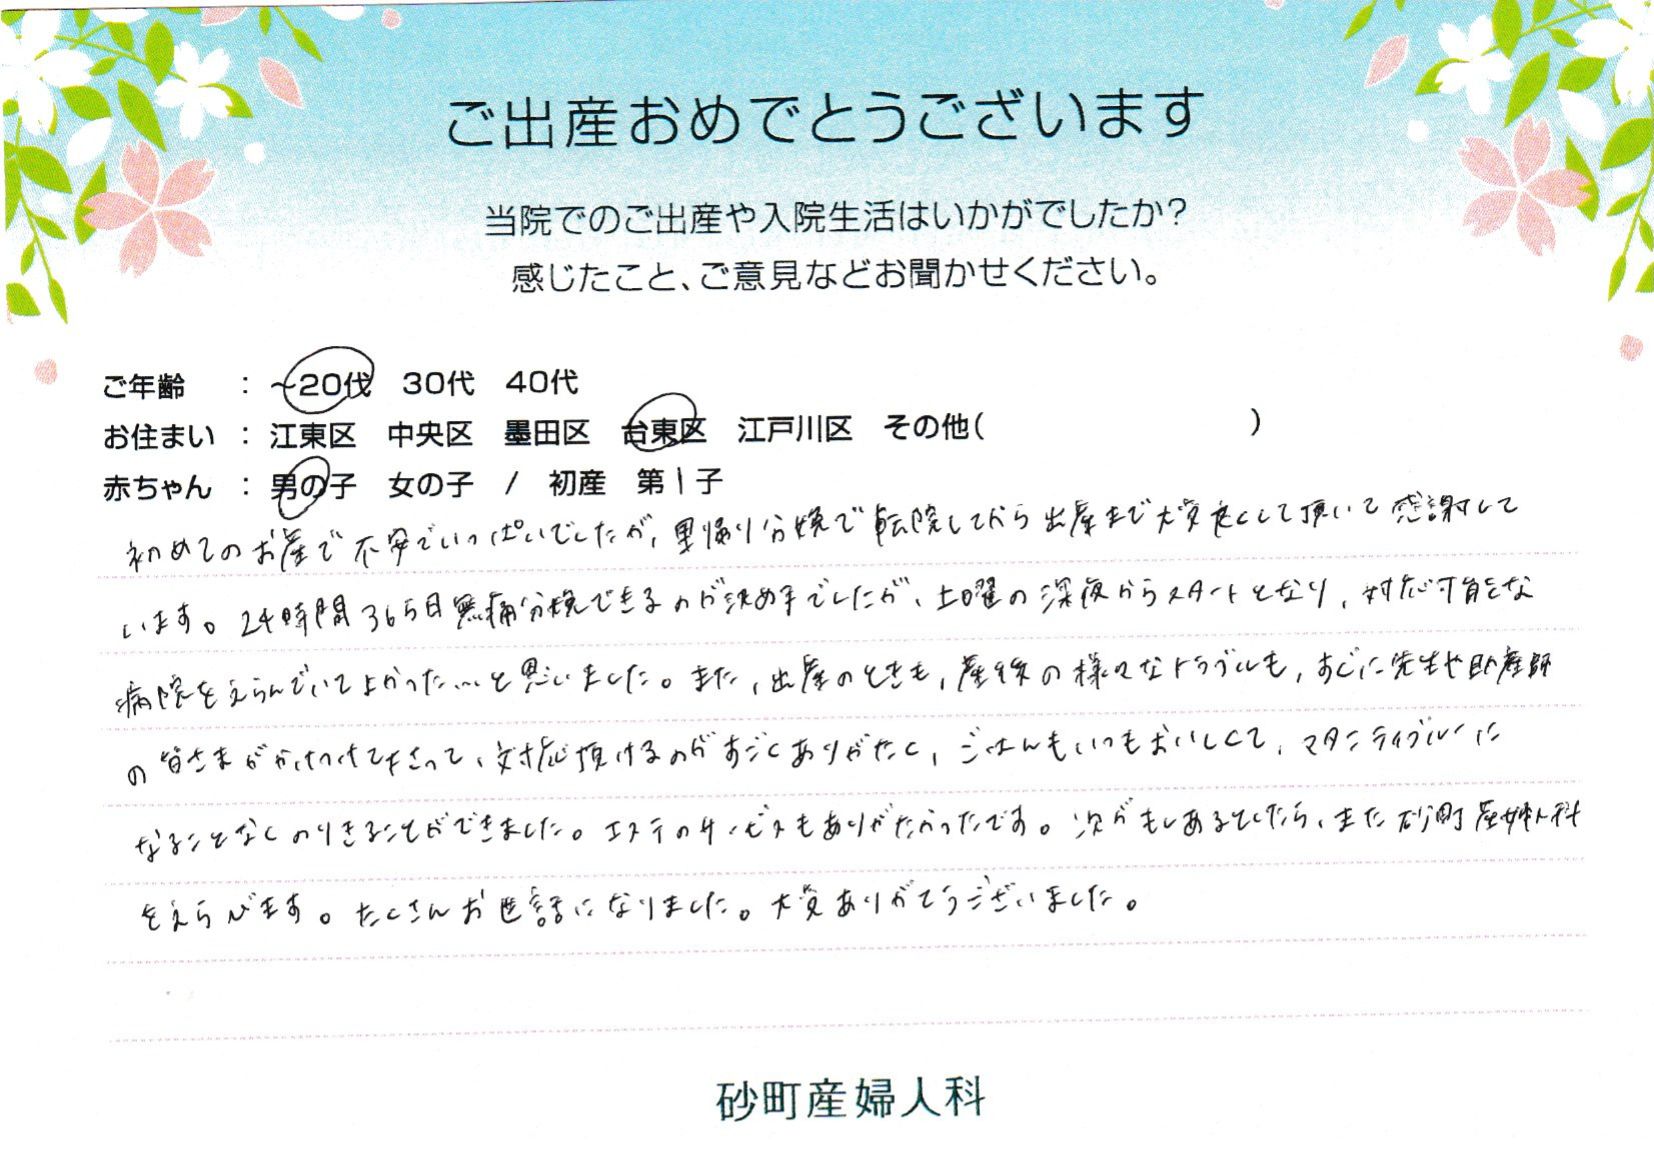 ご出産おめでとうございます
当院でのご出産や入院生活はいかがでしたか？
感じたこと、ご意見などお聞かせください。
ご年齢 ： ～20代 30代 40代
お住まい ： 江東区 中央区 墨田区 台東区 江戸川区 その他( )
赤ちゃん ： 男の子 女の子 / 初産 第1子
初めてのお産で不安でいっぱいでしたが、里帰り分娩で転院してから出産まで大変良くして頂いて感謝して
います。24時間365日無痛分娩できるのが決め手でしたが、土曜の深夜からスタートとなり、対応可能な
病院をえらんでいてよかった…と思いました。また、出産のときも、産後の様々なトラブルも、すぐに先生や助産師
の皆さまがかけつけて下さって、対応頂けるのがすごくありがたく、ごはんもいつもおいしくて、マタニティブルーに
なることなくのりきることができました。エステのサービスもありがたかったです。次がもしあるとしたら、また砂町産婦人科
をえらびます。たくさんお世話になりました。大変ありがとうございました。
砂町産婦人科